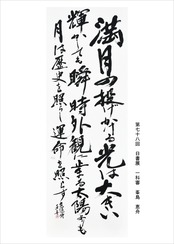 満月の擽がる光は大きい
輝かしても瞬時外観に生る太陽よりも
月は歴史を照らし運命を照らす
第七十八回 日書展 一科審 峯島 恵舟